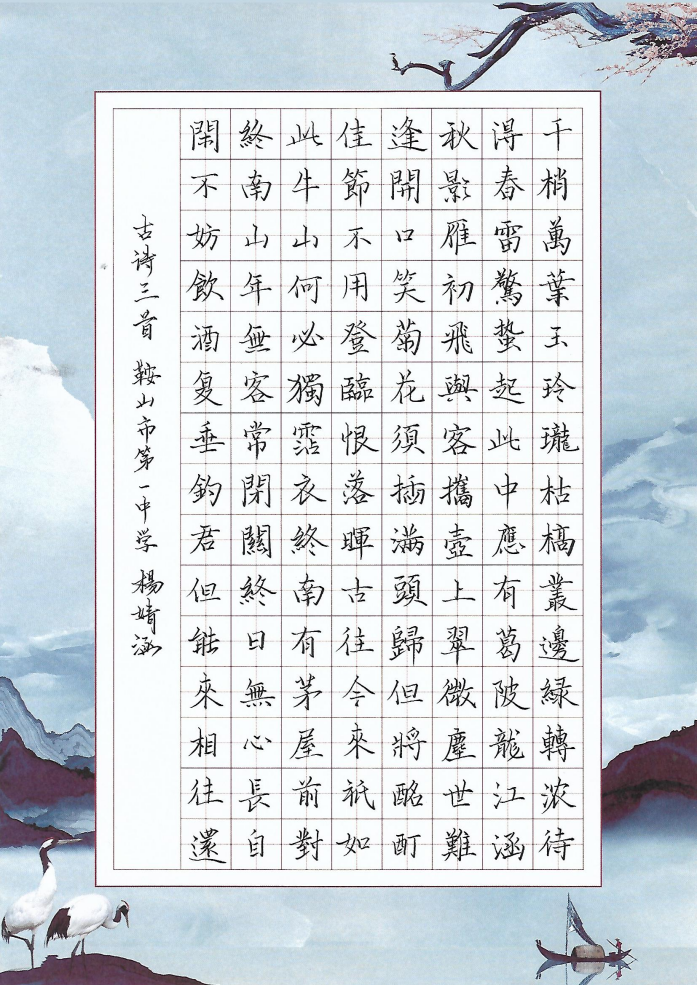 千梢萬葉玉玲瓏枯槁叢邊緑轉浓待
淂春雷驚蟄起此中應有葛陂龍江涵
秋影雁初飛與客攜壺上翠微塵世難
逢開口笑菊花須插滿頭歸但將酩酊
佳節不用登臨恨落暉古往今來祇如
此牛山何必獨霑衣終南有茅屋前對
終南山年無客常閉關終日無心長自
閑不妨飲酒复垂釣君但能來相往還
古诗三首 鞍山市第一中学 楊婧涵